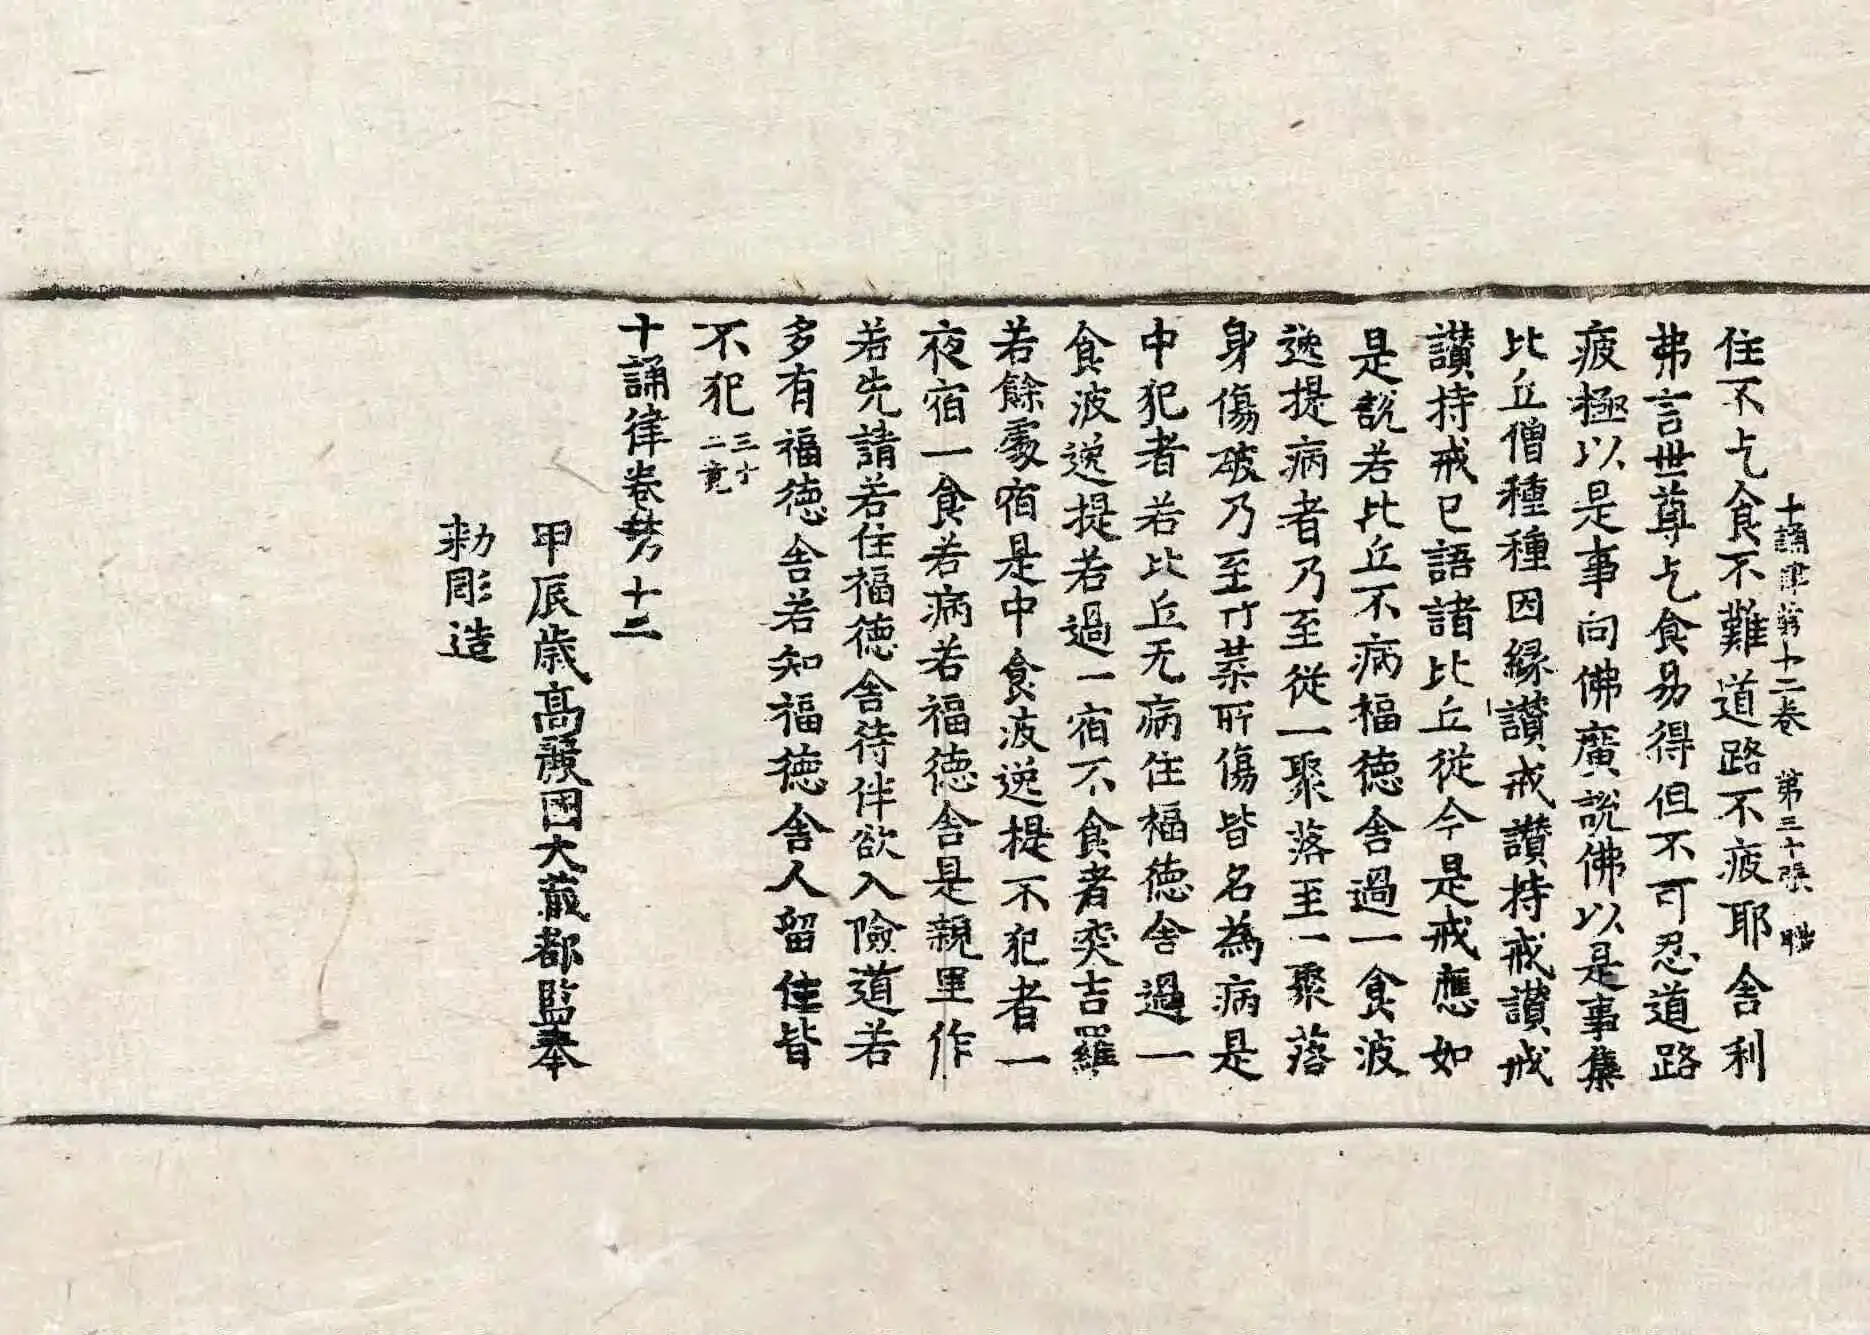 十誦律第十二卷 第三十張
住不乞食不難道路不疲耶舍利
弗言世尊乞食易得但不可忍道路
疲極以是事向佛廣說佛以是事集
比丘僧種種因緣讃戒讃持戒讃戒
讃持戒已語諸比丘從今是戒應如
是說若比丘不病福德舍過一食波
逸提病者乃至從一聚落至一聚落
身傷破乃至竹葉所傷皆名為病是
中犯者若比丘无病住福德舍過一
食波逸提若過一宿不食者突吉羅
若餘處宿是中食波逸提不犯者一
夜宿一食若病若福德舍是親里作
若先請若住福德舍待伴欲入險道若
多有福德舍若知福德舍人留住皆
不犯三十二竟
十誦律卷第十二
甲辰歲高麗國大藏都監奉
勑彫造